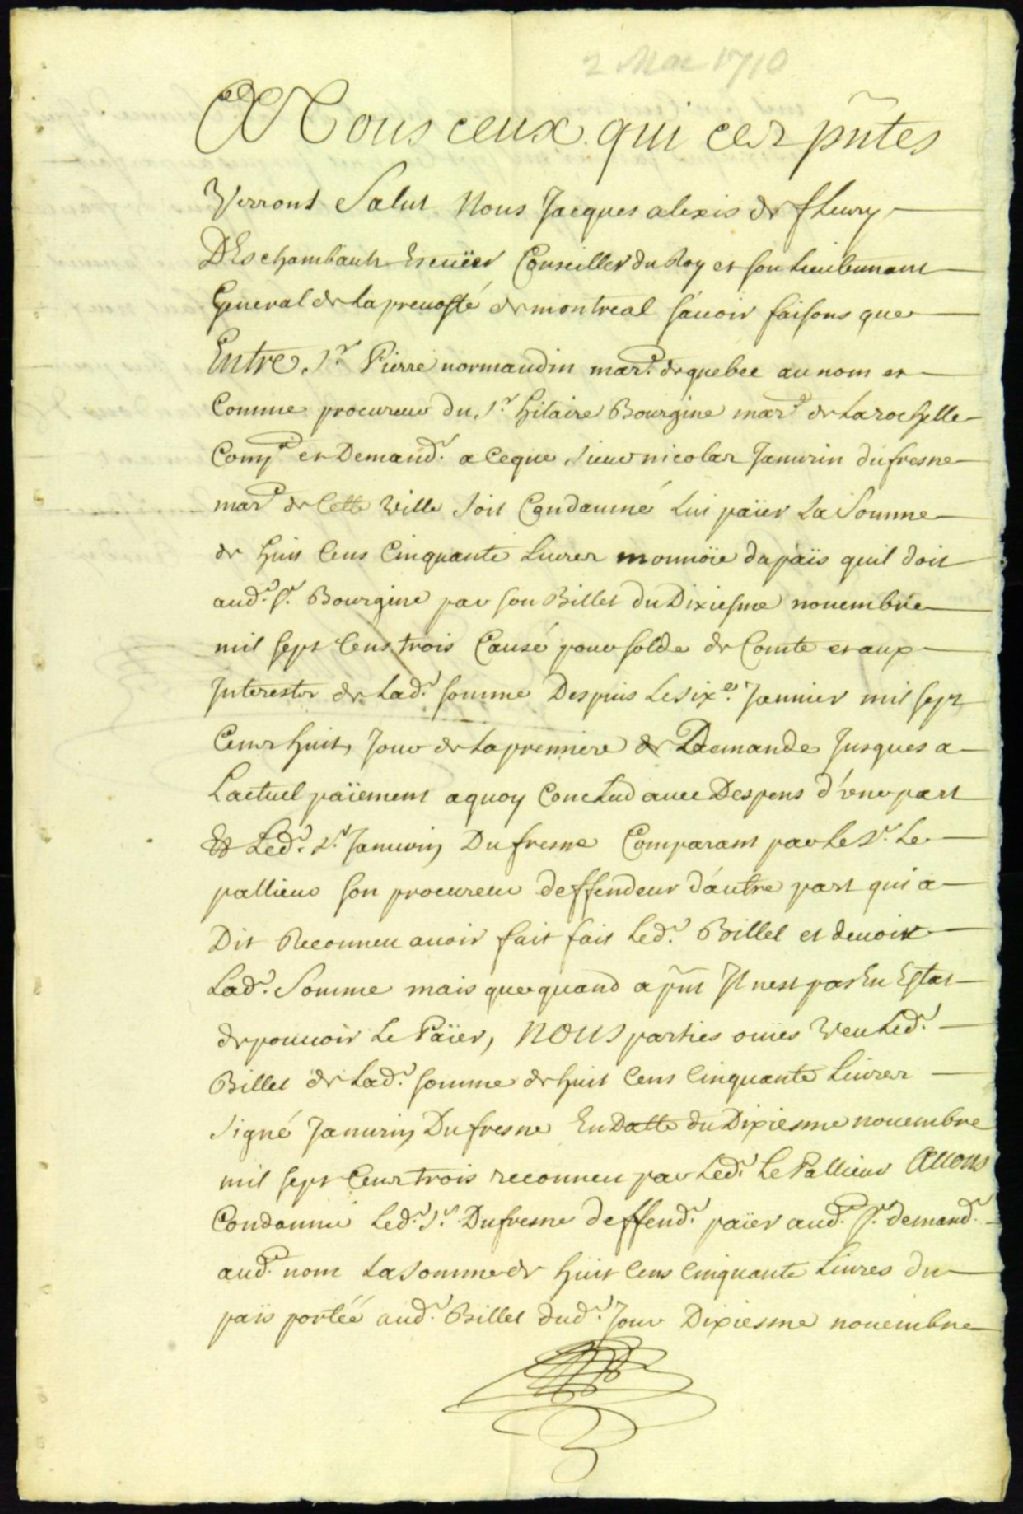 2 Mai 1710
A Tous ceux qui ces pñtes
Verront Salut Nous Jacques alexis de fleury
DEschambault Escuïer Conseiller du Roy et son Lieutenant
General de la prevosté de montreal sçavoir faisons que
Entre Sr Pierre normandin mard de quebec au nom et
Comme procureur du Sr hilaire Bourgine mard de Larochelle
Demandr a ceque Sieur nicolas Janurin dufresne
mard de Cette Ville soit Condamné Lui païer La Somme
de huit Cens Cinquante Livres monnöie du païs quil doit
audt Sr Bourgine par son Billet du Dixiesme nouembre
mil sept Cens trois Causé pour solde de Comte et aux
Interestz de Ladt somme Despuis Le six.e Januier mil sept
Cens huit, Jour de La premiere de Demande Jusques a
Lactuel païement aquoy Conclud auec Despens d'vne part
Et Ledt Sr Januriy Dufresne Comparant par Le Sr Le
pallieur son procureur deffendeur d'autre part qui a
Dit Reconneu auoir fait fait Ledt Billet et deuoir
Ladt Somme mais que quand a pñt Jl nest pas En Estat
de pouuoir Le Païer, NOUS parties ouies Veu Ledt
Billet de Ladt somme de huit Cens Cinquante Liures
signé Januriy Dufresne En Datte du Dixiesme nouembre
mil sept Cens trois reconneu par Ledt Le Pallieur Auons
Condamné Ledt Sr Dufresne deffendr païer audt Sr demandr
audt nom La somme de huit Cens Cinquante Liures du
païs portée audt Billet dudt Jour Dixiesme nouembre